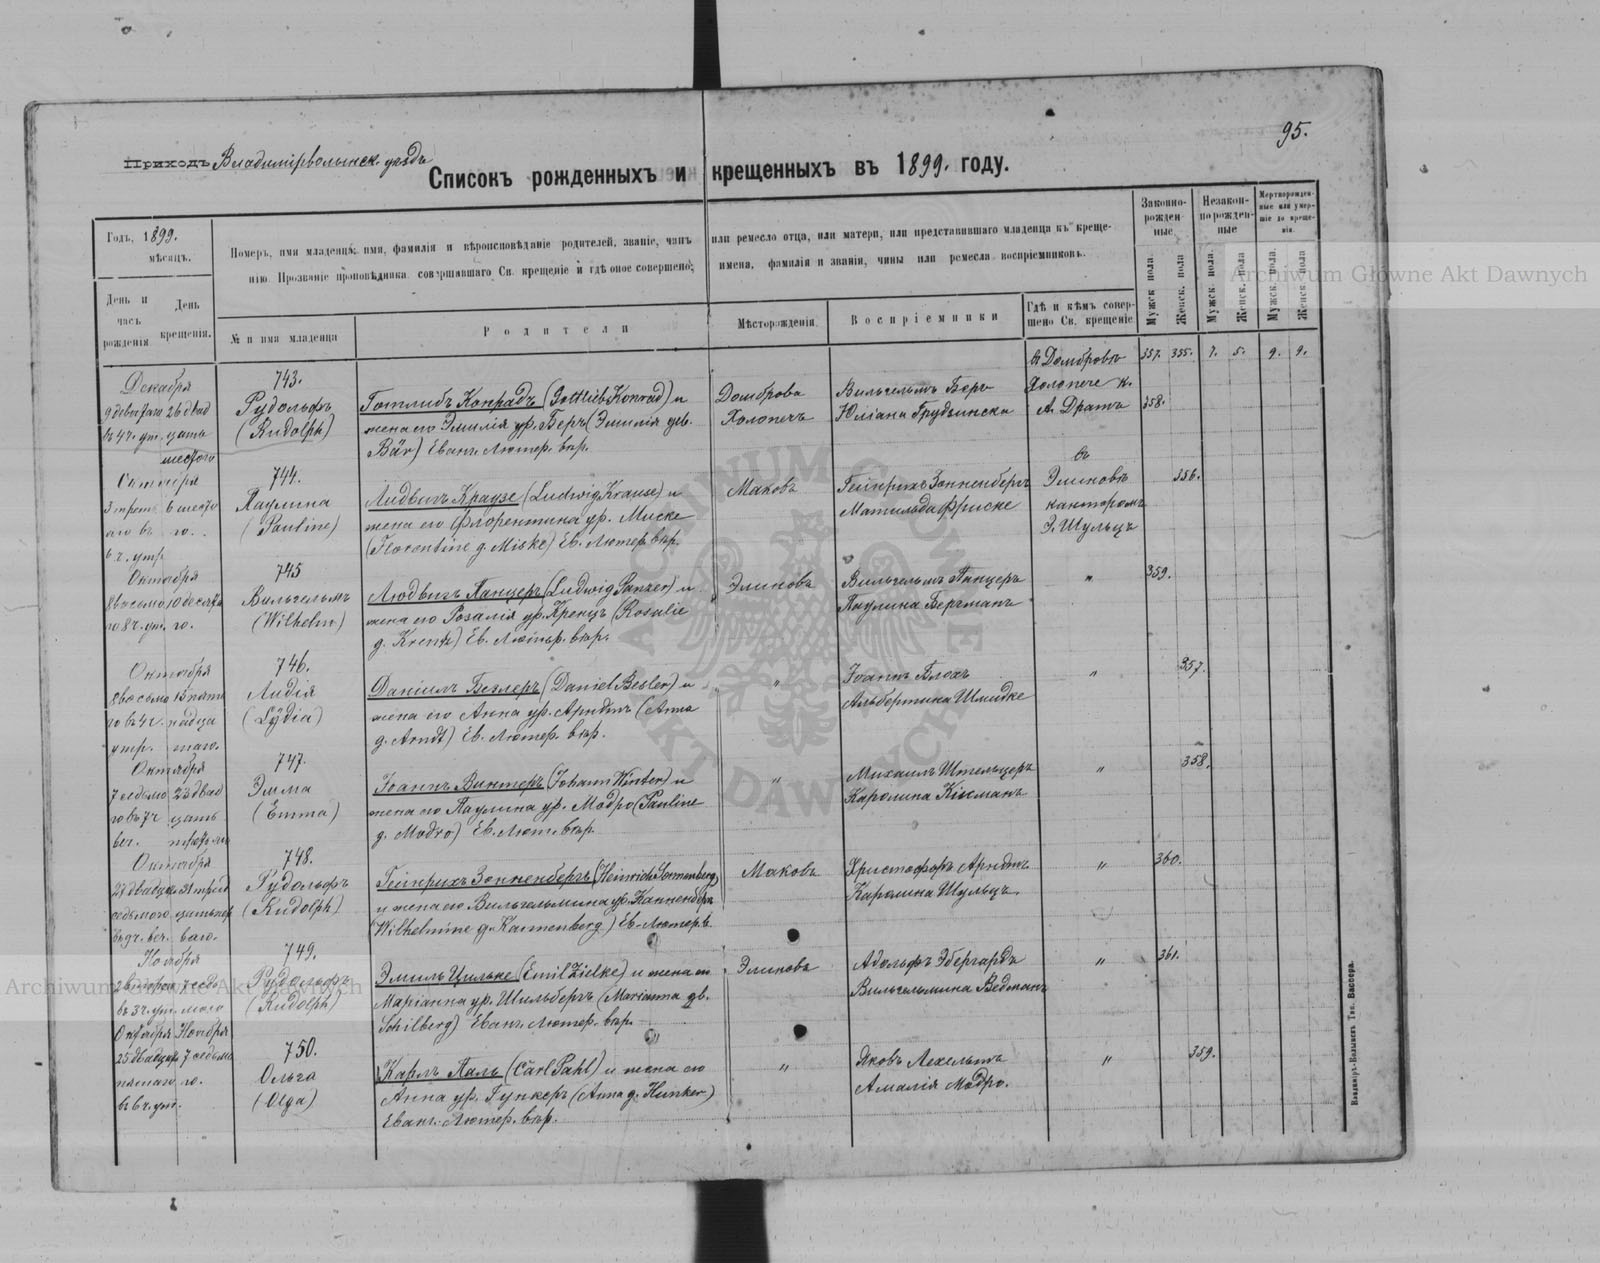 95.
Приходъ Владимірволынск. уѣздъ
Списокъ рожденныхъ и крещенныхъ въ 1899. году.
Годъ, 1899.
мѣсяцъ.
День и часъ рожденія
День крещенія.
Номеръ, имя младенца, имя, фамилія и вѣроисповѣданіе родителей, званіе, чинъ или ремесло отца, или матери, или представившаго младенца къ креще-
нію. Прозваніе проповѣдника совершившаго Св. крещеніе и гдѣ оное совершено; имена, фамилія и званіи, чины или ремесла воспріемниковъ.
№ и имя младенца
Родители
Мѣсторожденія
Воспріемники
Гдѣ и кѣмъ совер-
шено Св. крещеніе
Законно-
рожден-
ные
Незакон-
норожден-
ные
Мертворожден-
ные или умер-
шіе до креще-
нія.
Мужск. пола.
Женск. пола
Мужск. пола.
Женск. пола
Мужск. пола.
Женск. пола
357. 355. 7. 5. 9. 9.
Декабря
743.
Рудольфъ
(Rudolph)
Готлибъ Конрадъ (Gottlieb Konrad) и
жена его Эмилія ур. Беръ (Эмилія
Bär) Еванг. Лютер. вѣр.
Домброва
Холопечъ
Вильгельмъ Беръ
Юліана Грудзинска
въ Домбровѣ
Холопече к.
А. Дратъ
358.
Октября
744.
Паулина
(Pauline)
Лидвигъ Краузе (Ludwig Krause) и
жена его Флорентина ур. Миске
(Florentine g. Miske) Ев. Лютер. вѣр.
Маковъ
Гейнрихъ Зонненбергъ
Матильда Фриске
въ
Элиновѣ
канторомъ
Э. Шульцъ
356.
Октября
745
Вильгельмъ
(Wilhelm)
Людвигъ Панцеръ (Ludwig Panzer) и
жена его Розалія ур. Кренцъ (Rosalie
g. Krentz) Ев. Лютер. вѣр.
Элиновъ
Вильгельмъ Панцеръ
Паулина Бергманъ
"
359.
Октября
746.
Лидія
(Lydia)
Даніилъ Беслеръ (Daniel Besler) и
жена его Анна ур. Арндтъ (Anna
g. Arndt) Ев. Лютер. вѣр.
"
Іоаннъ Блохъ
Альбертина Шмидке
"
357.
Октября
747.
Эмма
(Emma)
Іоаннъ Винтеръ (Johann Winter) и
жена его Паулина ур. Модро (Pauline
g. Modro) Ев. Лют. вѣр.
"
Михаилъ Штельцеръ
Каролина Кикманъ
"
358.
Октября
748.
Рудольфъ
(Rudolph)
Гейнрихъ Зонненбергъ (Heinrich Sonnenberg)
и жена его Вильгельмина ур. Канненбергъ
(Wilhelmine g. Kannenberg) Ев. Лютер. в.
Маковъ
Христофоръ Арндтъ
Каролина Шульцъ
"
360.
Ноября
749.
Рудольфъ
(Rudolph)
Эмилъ Цильке (Emil Zielke) и жена его
Маріанна ур. Шильбергъ (Marianna
Schilberg) Еванг. Лютер. вѣр.
Элиновъ
Адольфъ Эбергардъ
Вильгельмина Ведманъ
"
361.
Октября Ноября
750.
Ольга
(Olga)
Карлъ Паль (Carl Pahl) и жена его
Анна ур. Гункеръ (Anna g. Hunker)
Еванг. Лютер. вѣр.
"
Яковъ Лехельтъ
Амалія Модро.
"
359.
Владиміръ-Волынскъ Тип. Вассера.
Archiwum Główne Akt Dawnych
ARCHIWUM GŁÓWNE AKT DAWNYCH